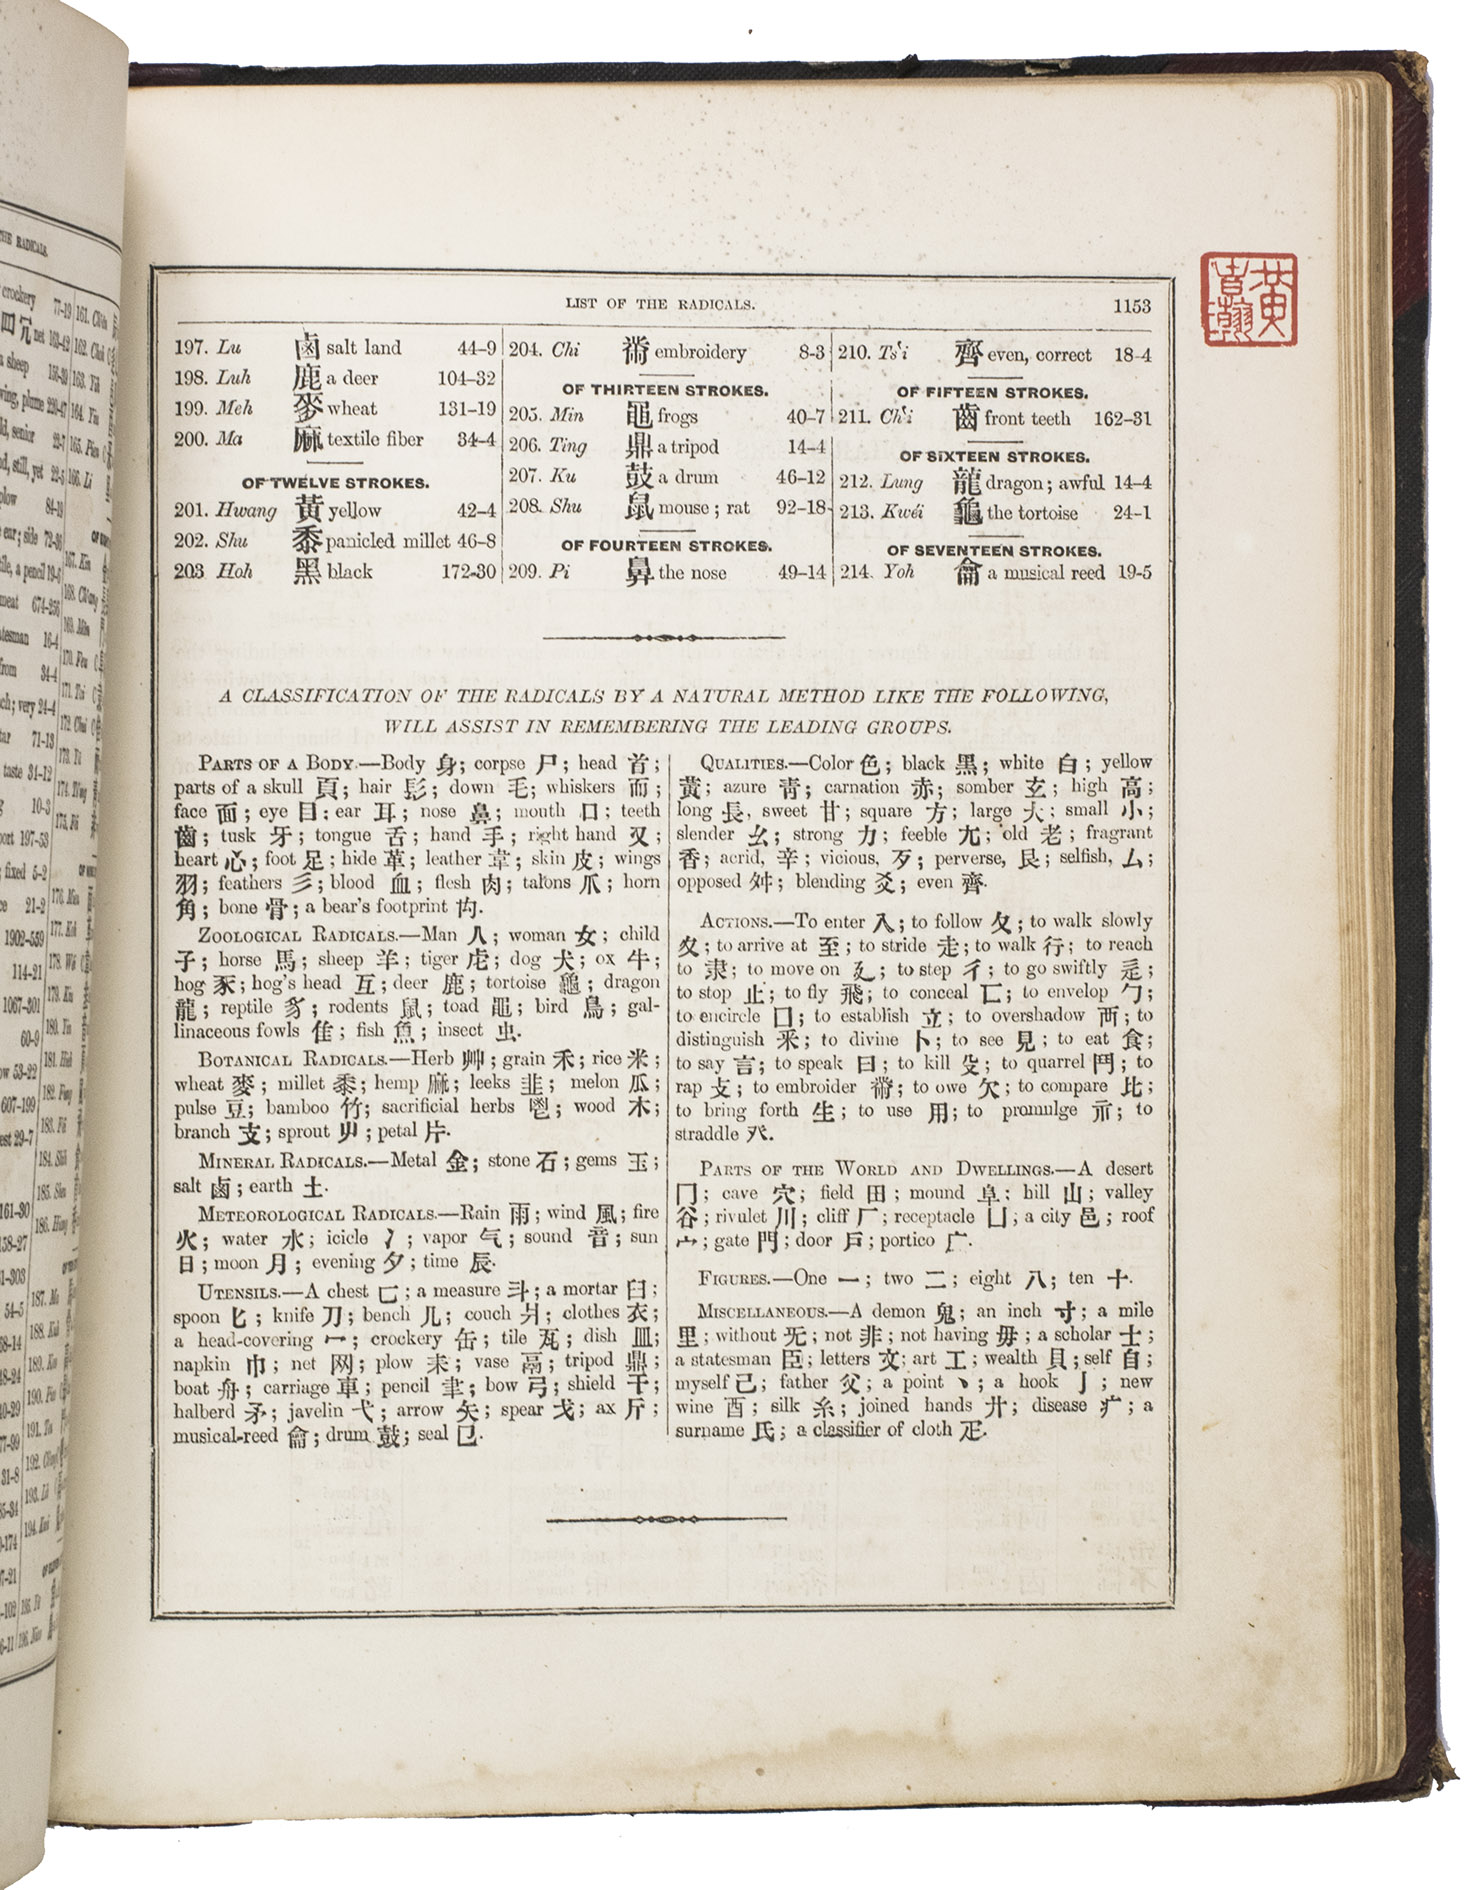 THE RADICALS.
crockery 77-19
net 163-12
a sheep
wing, plume 220-47
senior
still, yet 22-5
plow 84-19
ear; side 72-36
a pencil 19-6
meat 674-256
statesman 16-4
from 34-4
very 24-4
71-13
taste 31-12
10-3
197-53
fixed 5-2
21-2
1902-559
114-21
1067-301
60-9
53-22
607-199
29-7
161-30
161. Ch'en
163. Yih
164. Yiu
166. Li
167. Kin
168. Ch'ang
169. Mun
170. Feu
171. Tai
172. Chui
174. Ts'ing
175. Fi
LIST OF THE RADICALS. 1153
197. Lu 鹵 salt land 44-9
198. Luh 鹿 a deer 104-32
199. Meh 麥 wheat 131-19
200. Ma 麻 textile fiber 34-4
OF TWELVE STROKES.
201. Hwang 黃 yellow 42-4
202. Shu 黍 panicled millet 46-8
203 Hoh 黑 black 172-30
204. Chi 黹 embroidery 8-3
OF THIRTEEN STROKES.
205. Min 黽 frogs 40-7
206. Ting 鼎 a tripod 14-4
207. Ku 鼓 a drum 46-12
208. Shu 鼠 mouse; rat 92-18
OF FOURTEEN STROKES.
209. Pi 鼻 the nose 49-14
210. Ts'i 齊 even, correct 18-4
OF FIFTEEN STROKES.
211. Ch'i 齒 front teeth 162-31
OF SIXTEEN STROKES.
212. Lung 龍 dragon; awful 14-4
213. Kwéi 龜 the tortoise 24-1
OF SEVENTEEN STROKES.
214. Yoh 龠 a musical reed 19-5
A CLASSIFICATION OF THE RADICALS BY A NATURAL METHOD LIKE THE FOLLOWING,
WILL ASSIST IN REMEMBERING THE LEADING GROUPS.
PARTS OF A BODY.—Body 身; corpse 尸; head 首;
parts of a skull 頁; hair 髟; down 毛; whiskers 而;
face 面; eye 目; ear 耳; nose 鼻; mouth 口; teeth
齒; tusk 牙; tongue 舌; hand 手; right hand 又;
heart 心; foot 足; hide 革; leather 韋; skin 皮; wings
羽; feathers 彡; blood 血; flesh 肉; talons 爪; horn
角; bone 骨; a bear's footprint 禸.
ZOOLOGICAL RADICALS.—Man 人; woman 女; child
子; horse 馬; sheep 羊; tiger 虍; dog 犬; ox 牛;
hog 豕; hog's head 彑; deer 鹿; tortoise 龜; dragon
龍; reptile 豸; rodents 鼠; toad 黽; bird 鳥; gal-
linaceous fowls 隹; fish 魚; insect 虫.
BOTANICAL RADICALS.—Herb 艸; grain 禾; rice 米;
wheat 麥; millet 黍; hemp 麻; leeks 韭; melon 瓜;
pulse 豆; bamboo 竹; sacrificial herbs 鬯; wood 木;
branch 支; sprout 屮; petal 片.
MINERAL RADICALS.—Metal 金; stone 石; gems 玉;
salt 鹵; earth 土.
METEOROLOGICAL RADICALS.—Rain 雨; wind 風; fire
火; water 水; icicle 冫; vapor 气; sound 音; sun
日; moon 月; evening 夕; time 辰.
UTENSILS.—A chest 匚; a measure 斗; a mortar 臼;
spoon 匕; knife 刀; bench 几; couch 爿; clothes 衣;
a head-covering 冖; crockery 缶; tile 瓦; dish 皿;
napkin 巾; net 网; plow 耒; vase 鬲; tripod 鼎;
boat 舟; carriage 車; pencil 聿; bow 弓; shield 干;
halberd 矛; javelin 弋; arrow 矢; spear 戈; ax 斤;
musical-reed 龠; drum 鼓; seal 卩.
QUALITIES.—Color 色; black 黑; white 白; yellow
黃; azure 青; carnation 赤; somber 玄; high 高;
long 長, sweet 甘; square 方; large 大; small 小;
slender 幺; strong 力; feeble 尢; old 老; fragrant
香; acrid, 辛; vicious, 歹; perverse, 艮; selfish, 厶;
opposed 舛; blending 爻; even 齊.
ACTIONS.—To enter 入; to follow 夂; to walk slowly
夊; to arrive at 至; to stride 走; to walk 行; to reach
to 隶; to move on 廴; to step 彳; to go swiftly 辵;
to stop 止; to fly 飛; to conceal 匸; to envelop 勹;
to encircle 囗; to establish 立; to overshadow 襾; to
distinguish 釆; to divine 卜; to see 見; to eat 食;
to say 言; to speak 曰; to kill 殳; to quarrel 鬥; to
rap 攴; to embroider 黹; to owe 欠; to compare 比;
to bring forth 生; to use 用; to promulge 示; to
straddle 癶.
PARTS OF THE WORLD AND DWELLINGS.—A desert
冂; cave 穴; field 田; mound 阜; hill 山; valley
谷; rivulet 川; cliff 厂; receptacle 凵; a city 邑; roof
宀; gate 門; door 戶; portico 广.
FIGURES.—One 一; two 二; eight 八; ten 十.
MISCELLANEOUS.—A demon 鬼; an inch 寸; a mile
里; without 无; not 非; not having 毋; a scholar 士;
a statesman 臣; letters 文; art 工; wealth 貝; self 自;
myself 己; father 父; a point 丶; a hook 亅; new
wine 酉; silk 糸; joined hands 廾; disease 疒; a
surname 氏; a classifier of cloth 疋.
黃
吉
瀚